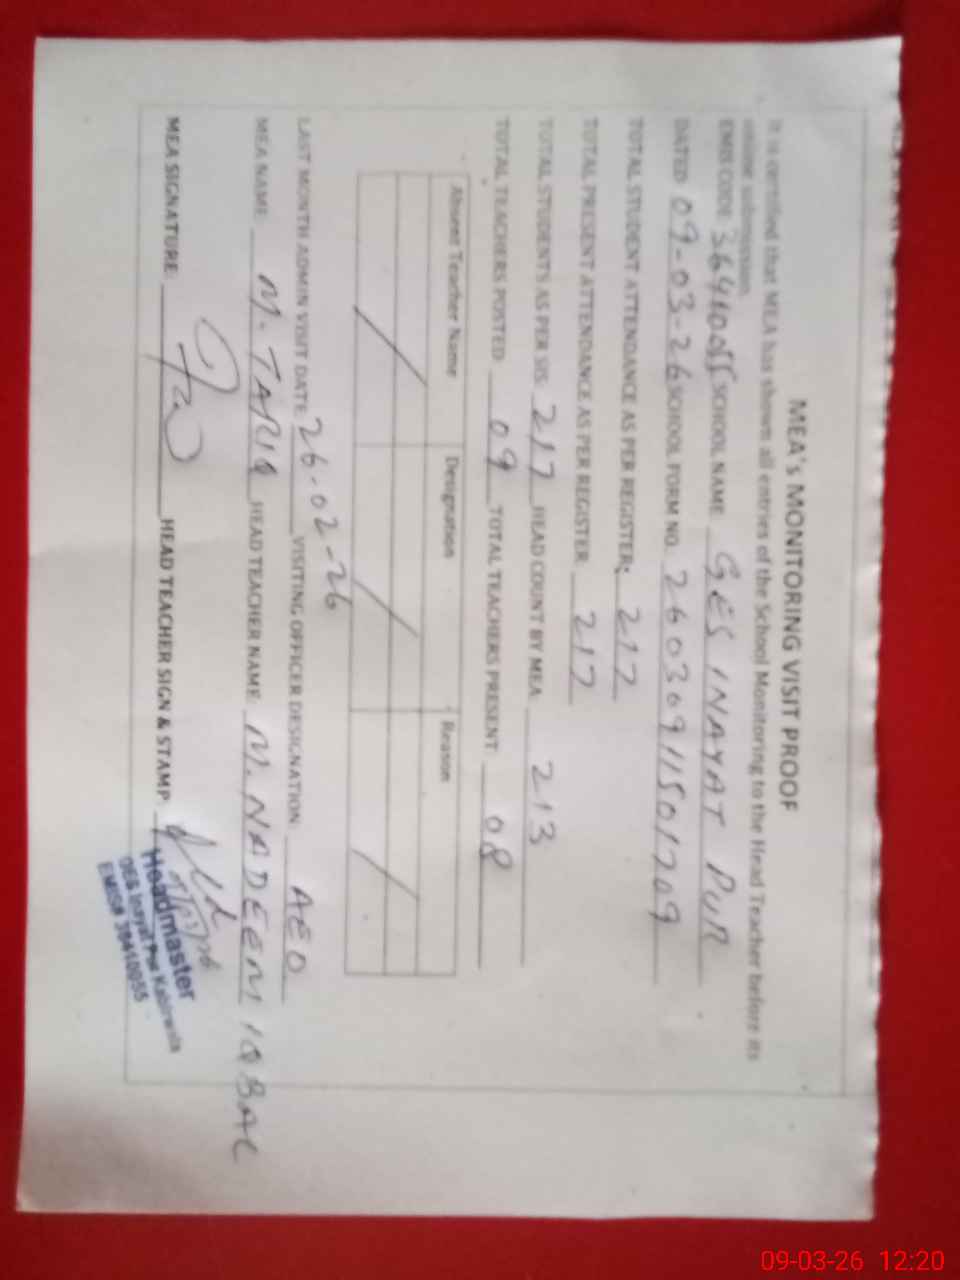 MEA's MONITORING VISIT PROOF
It is certified that MEA has shown all entries of the School Monitoring to the Head Teacher before its
online submission.
EMIS CODE 36410055 SCHOOL NAME GES INAYAT PUR
DATED 09-03-26 SCHOOL FORM NO. 26030911501709
TOTAL STUDENT ATTENDANCE AS PER REGISTER: 217
TOTAL PRESENT ATTENDANCE AS PER REGISTER 217
TOTAL STUDENTS AS PER SIS: 217 HEAD COUNT BY MEA 213
TOTAL TEACHERS POSTED 09 TOTAL TEACHERS PRESENT: 08
Absent Teacher Name Designation Reason
LAST MONTH ADMIN VISIT DATE 26-02-26 VISITING OFFICER DESIGNATION: AEO
MEA NAME M. TARIQ HEAD TEACHER NAME M. NADEEM IQBAL
MEA SIGNATURE: HEAD TEACHER SIGN & STAMP:
Headmaster
Inayat Pur Kabirwala
EMIS# 36410055
09-03-26 12:20